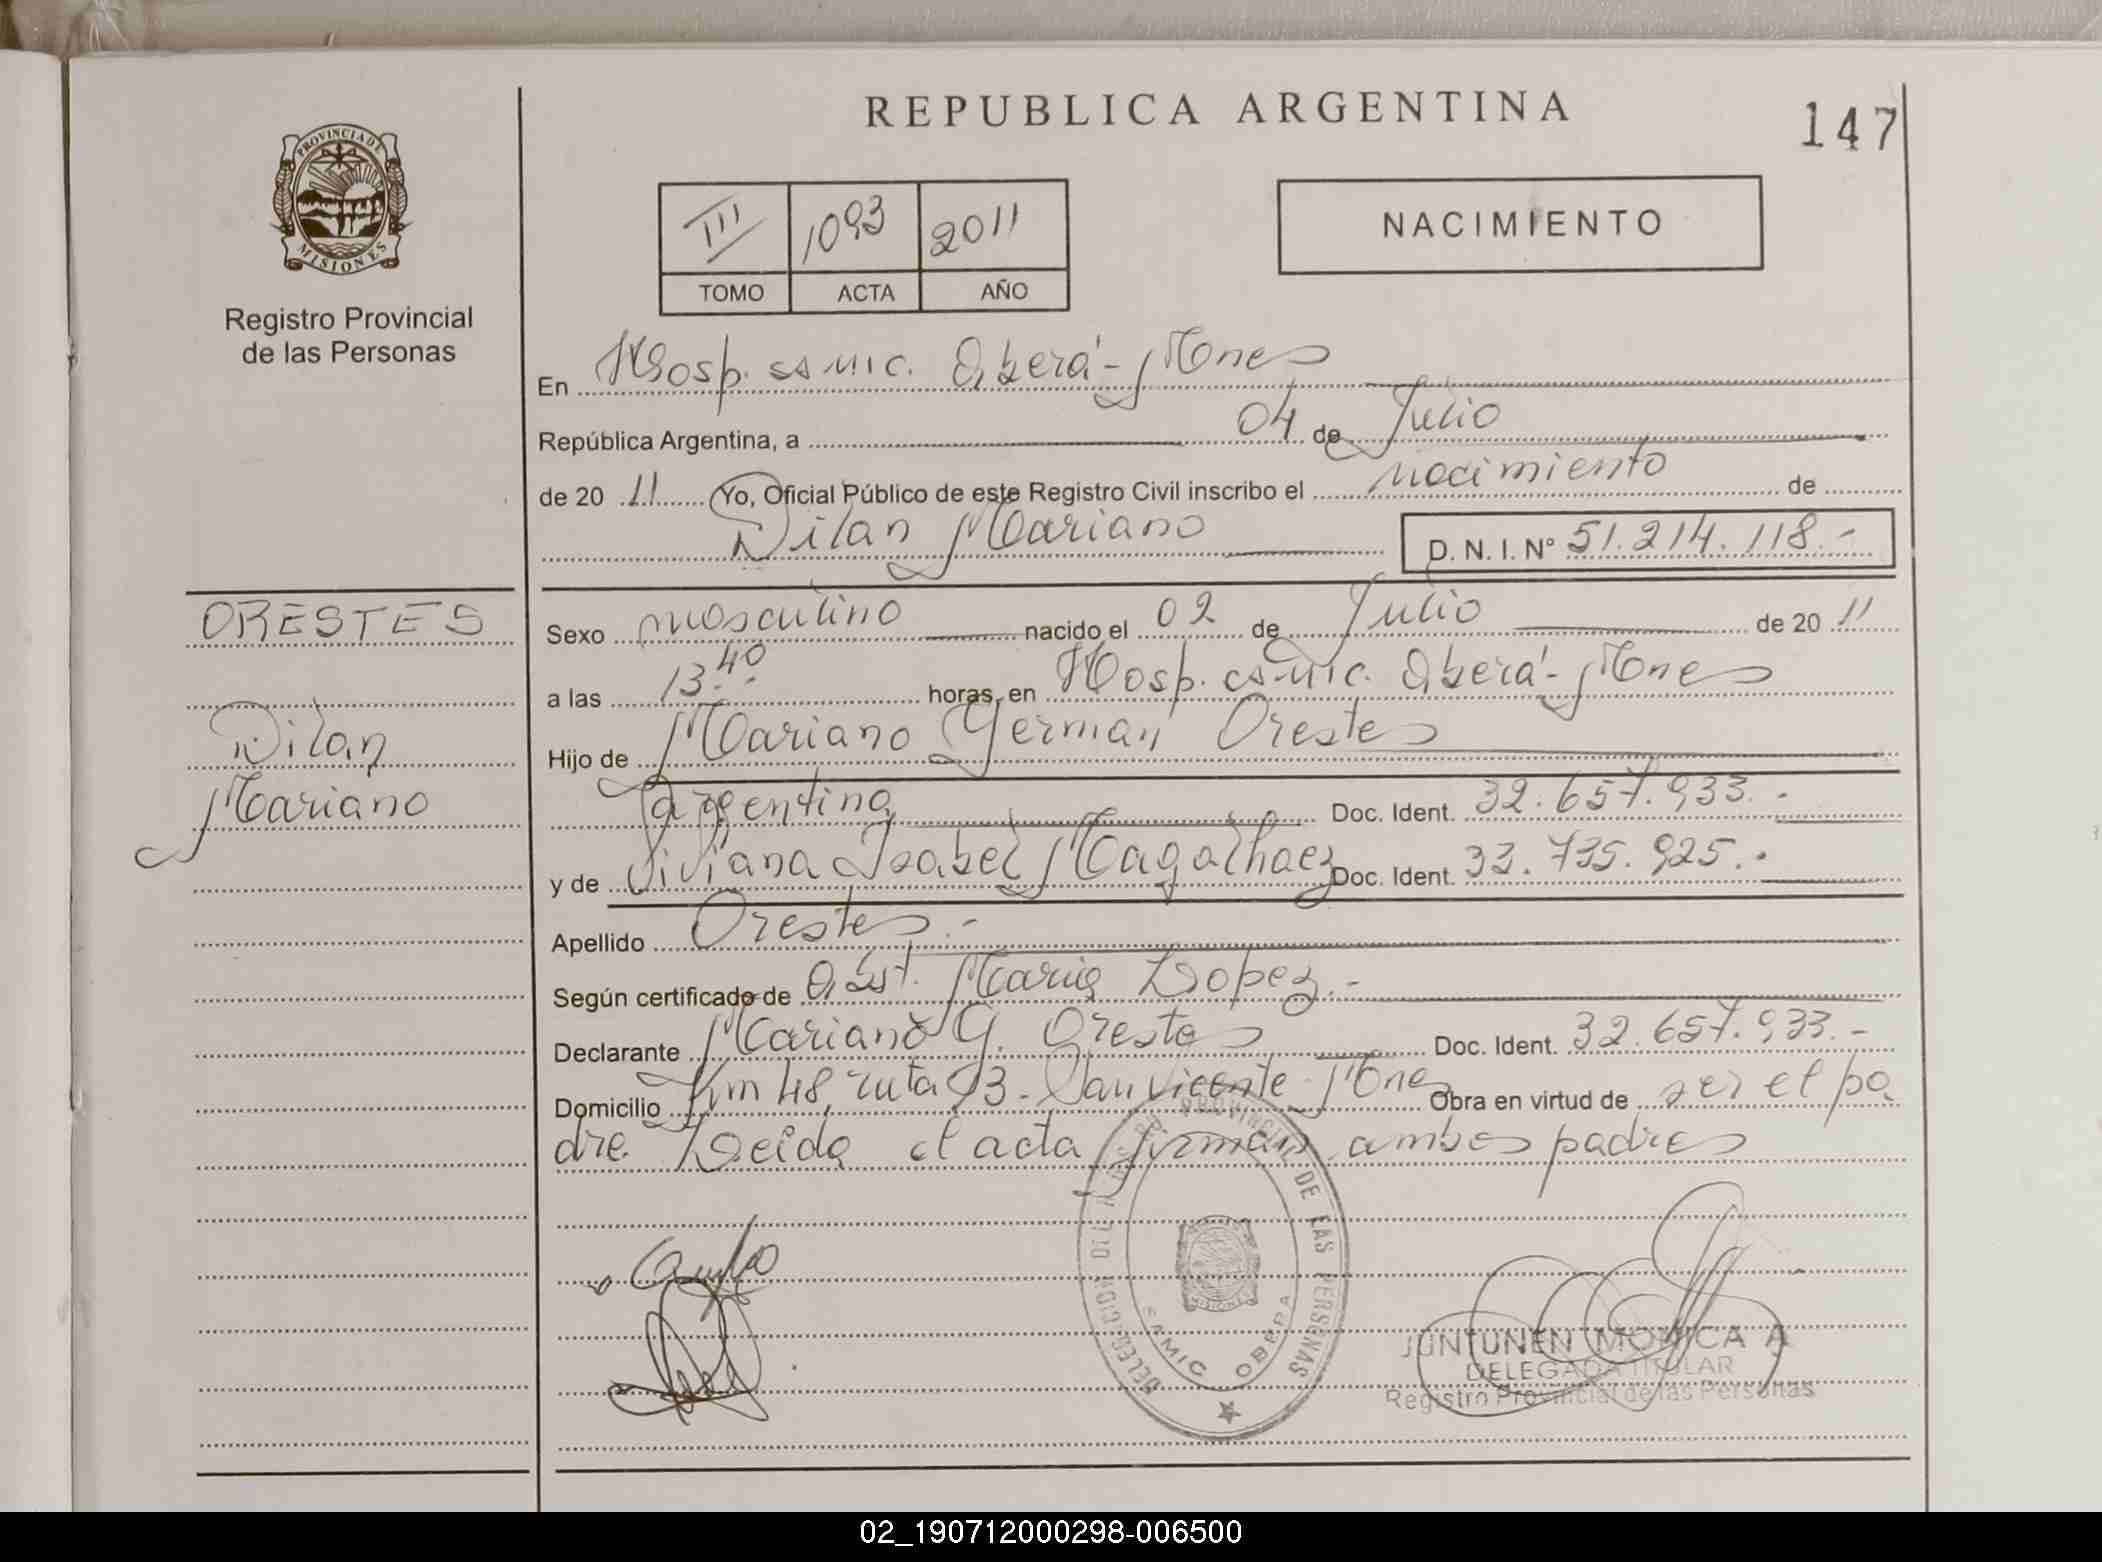 REPUBLICA ARGENTINA
147
PROVINCIA DE MISIONES
Registro Provincial
de las Personas
III 1093 2011
TOMO ACTA AÑO
NACIMIENTO
En Hosp. samic. Oberá - Mnes
República Argentina, a 04 de Julio
de 20 11 Yo, Oficial Público de este Registro Civil inscribo el nacimiento de
Dilan Mariano D. N. I. Nº 51.214.118.-
ORESTES
Dilan
Mariano
Sexo masculino nacido el 02 de Julio de 20 11
a las 13.40 horas, en Hosp. samic. Oberá - Mnes
Hijo de Mariano German Orestes
argentino Doc. Ident. 32.657.933.-
y de Viviana Isabel Magalhaez Doc. Ident. 33.735.925.-
Apellido Orestes.-
Según certificado de Obst. Maria Lopez.-
Declarante Mariano G. Orestes Doc. Ident. 32.657.933.-
Domicilio Km 48, ruta 13 - San Vicente - Mnes Obra en virtud de ser el pa
dre. Leida el acta firman ambos padres
PROVINCIAL DE LAS PERSONAS
DELEGACION
SAMIC OBERA
MISIONES
JUNTUNEN MONICA A
DELEGADA TITULAR
Registro Provincial de las Personas
02_190712000298-006500